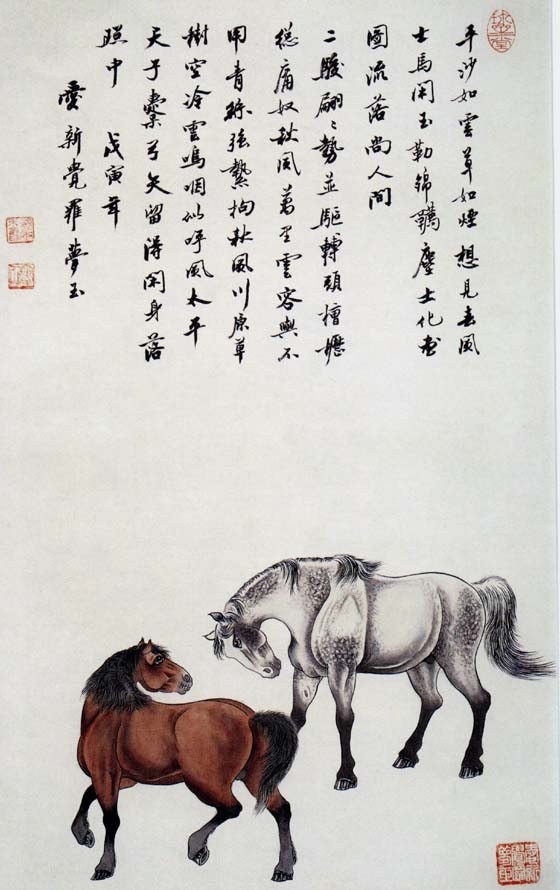 平沙如雲草如煙想見春風
士馬閑玉勒錦韉塵土化畫
圖流落尚人間
二駿翩〻勢並驅轉頭櫪
總庸奴秋風萬里雲容與不
用青絲強縶拘秋風川原草
樹空冷雲嗚咽似呼風太平
天子櫜弓矢留得閑身落
照中 戊寅年
愛新覺羅夢玉